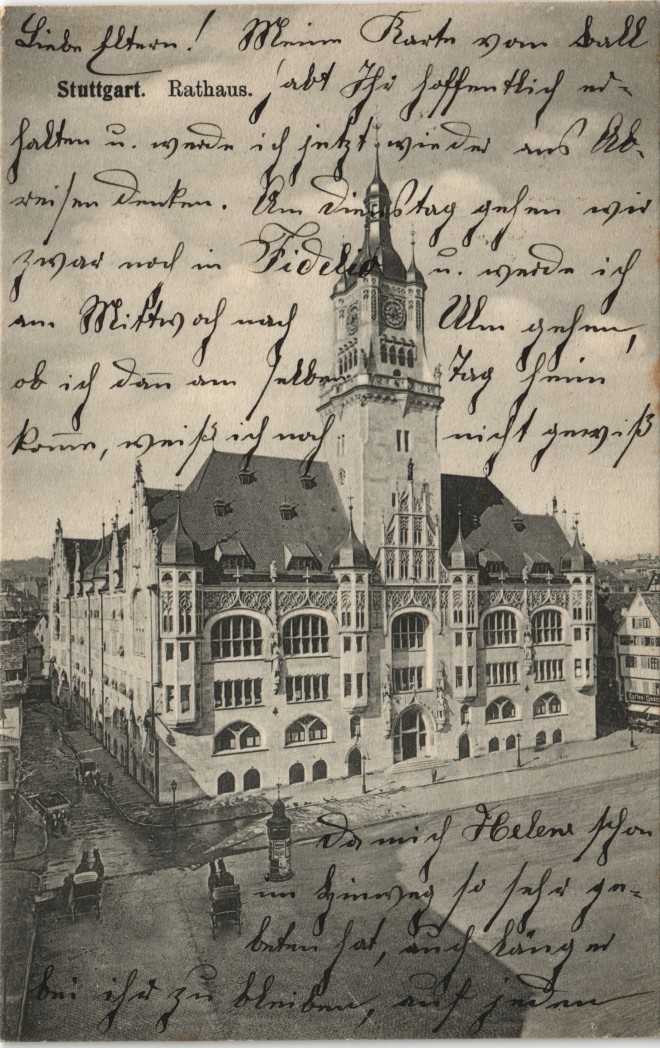 Liebe Eltern! Meine Karte vom Ball
Stuttgart. Rathaus.
habt Ihr hoffentlich er-
halten u. werde ich jetzt wieder ans Ab-
reisen denken. Am Dienstag gehen wir
zwar noch in Fidelio u. werde ich
am Mittwoch nach Ulm gehen,
ob ich dan̅ am selben Tag heim
kom̅e, weiß ich noch nicht gewiß
da mich Helene schon
im Hinweg so sehr ge-
beten hat, auch länger
bei ihr zu bleiben, auf jeden